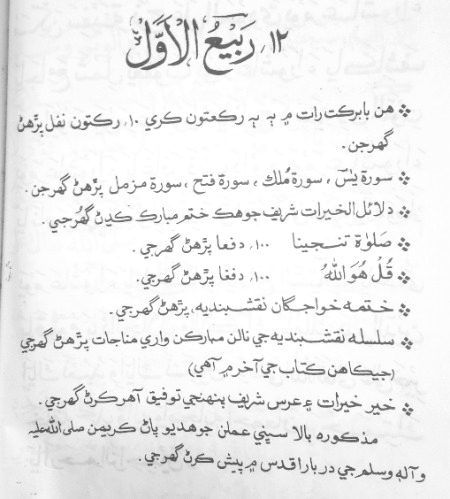 ۱۲؍ رَبِيْعُ الْاَوَّل
❖ هن بابرڪت رات ۾ ٻہ ٻہ رڪعتون ڪري ۱۰؍ رڪتون نفل پڙهڻ
گهرجن.
❖ سورة يٰسٓ ، سورة مُلك ، سورة فتح ، سورة مزمل پڙهڻ گهرجن.
❖ دلائل الخيرات شريف جو هڪ ختم مبارڪ ڪڍڻ گهُرجي.
❖ صَلوٰة تنجينا ۱۰۰؍ دفعا پڙهڻ گهرجي.
❖ قُلْ هُوَ اللهُ ۱۰۰؍ دفعا پڙهڻ گهرجي.
❖ ختمه خواجگان نقشبنديه، پڙهڻ گهرجي.
❖ سلسله نقشبنديه جي نالن مبارڪن واري مناجات پڙهڻ گهرجي
(جيڪا هن ڪتاب جي آخر ۾ آهي)
❖ خير خيرات ۽ عرس شريف پنهنجي توفيق آهر ڪرڻ گهرجي.
مذڪوره بالا سڀني عملن جو هديو پاڻ ڪريمن صلى الله عليہ
وآلہٖ وسلم جي دربار اقدس ۾ پيش ڪرڻ گهرجي.